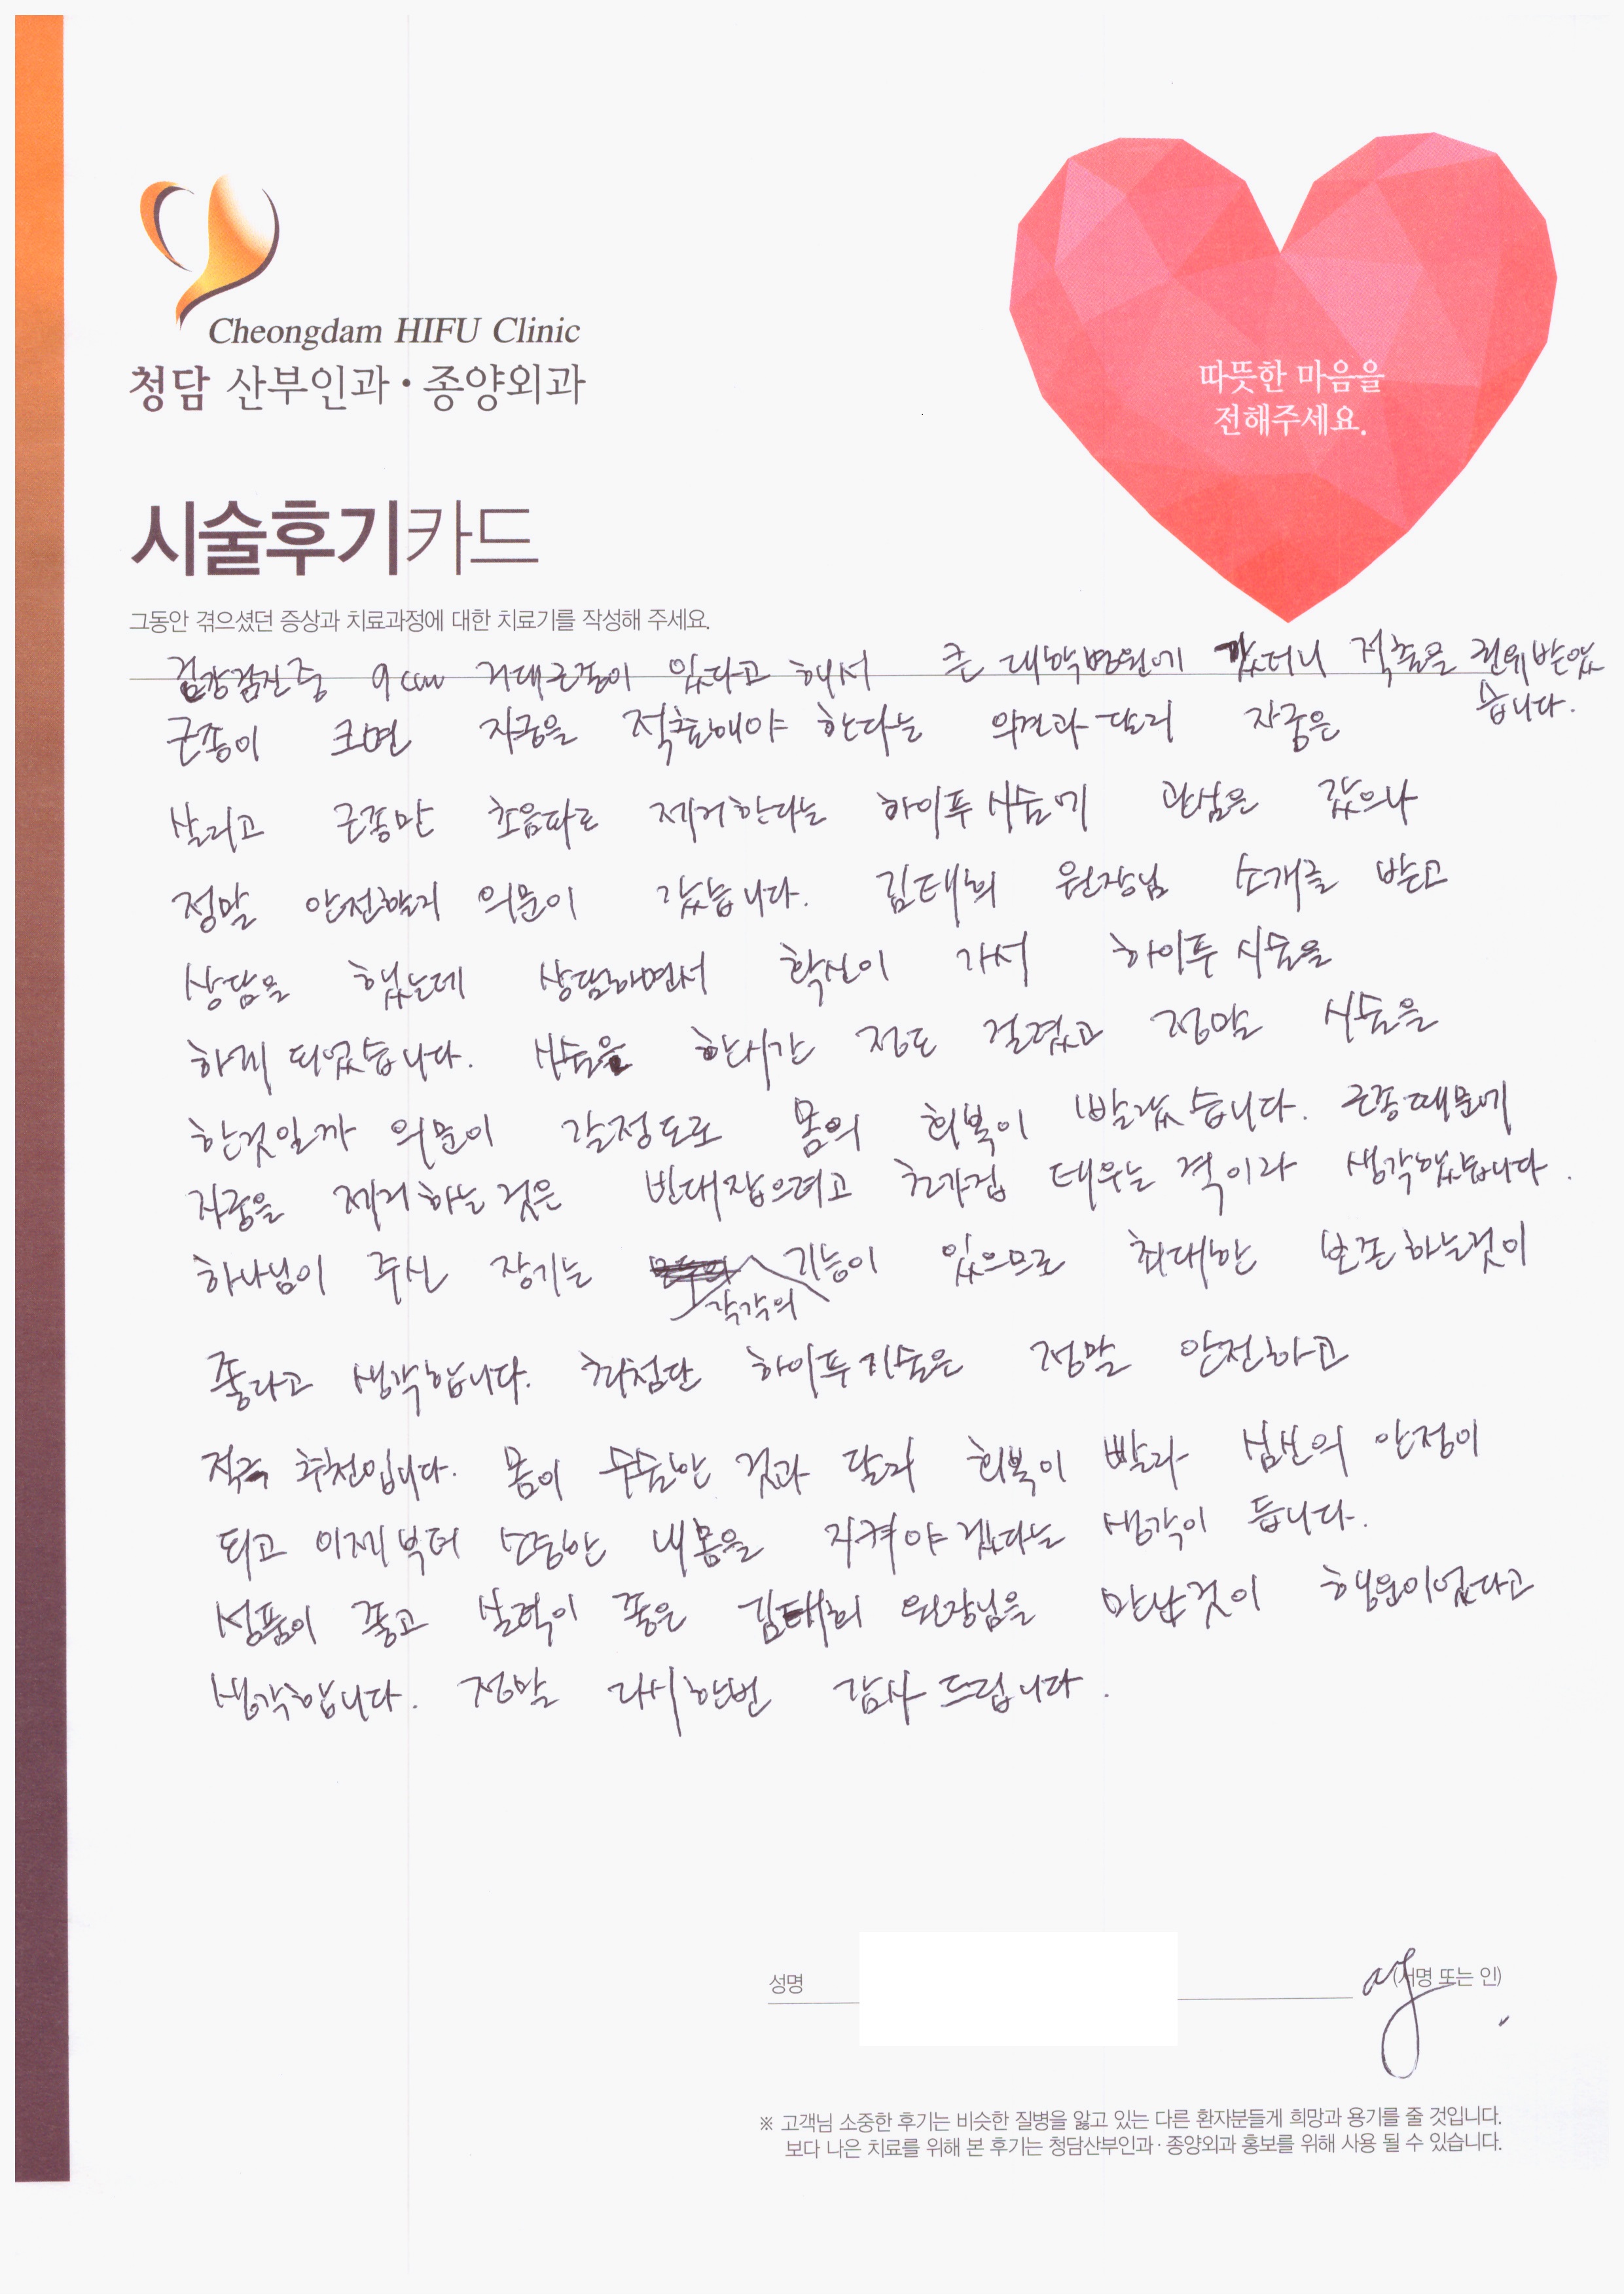 Cheongdam HIFU Clinic
청담 산부인과·종양외과
따뜻한 마음을
전해주세요.
시술후기카드
그동안 겪으셨던 증상과 치료과정에 대한 치료기를 작성해 주세요.
건강검진중 9cm 거대근종이 있다고 해서 큰 대학병원에 갔더니 적출을 권유받았
습니다.
근종이 크면 자궁을 적출해야 한다는 의견과 달리 자궁은
살리고 근종만 초음파로 제거한다는 하이푸시술에 관심은 갔으나
정말 안전할지 의문이 갔습니다. 김태희 원장님 소개를 받고
상담을 했는데 상담하면서 확신이 가서 하이푸 시술을
하게 되었습니다. 시술은 한시간 정도 걸렸고 정말 시술을
한것일까 의문이 갈정도로 몸의 회복이 빨랐습니다. 근종때문에
자궁을 제거하는 것은 빈대잡으려고 초가집 태우는 격이라 생각했습니다.
하나님이 주신 장기는 각각의 기능이 있으므로 최대한 보존하는것이
좋다고 생각합니다. 최첨단 하이푸기술은 정말 안전하고
적극 추천입니다. 몸이 수술한 것과 달리 회복이 빨라 심신의 안정이
되고 이제부터 소중한 내몸을 지켜야 겠다는 생각이 듭니다.
성품이 좋고 실력이 좋은 김태희 원장님을 만난것이 행운이었다고
생각합니다. 정말 다시한번 감사 드립니다.
성명
(서명 또는 인)
※ 고객님 소중한 후기는 비슷한 질병을 앓고 있는 다른 환자분들게 희망과 용기를 줄 것입니다.
보다 나은 치료를 위해 본 후기는 청담산부인과·종양외과 홍보를 위해 사용 될 수 있습니다.